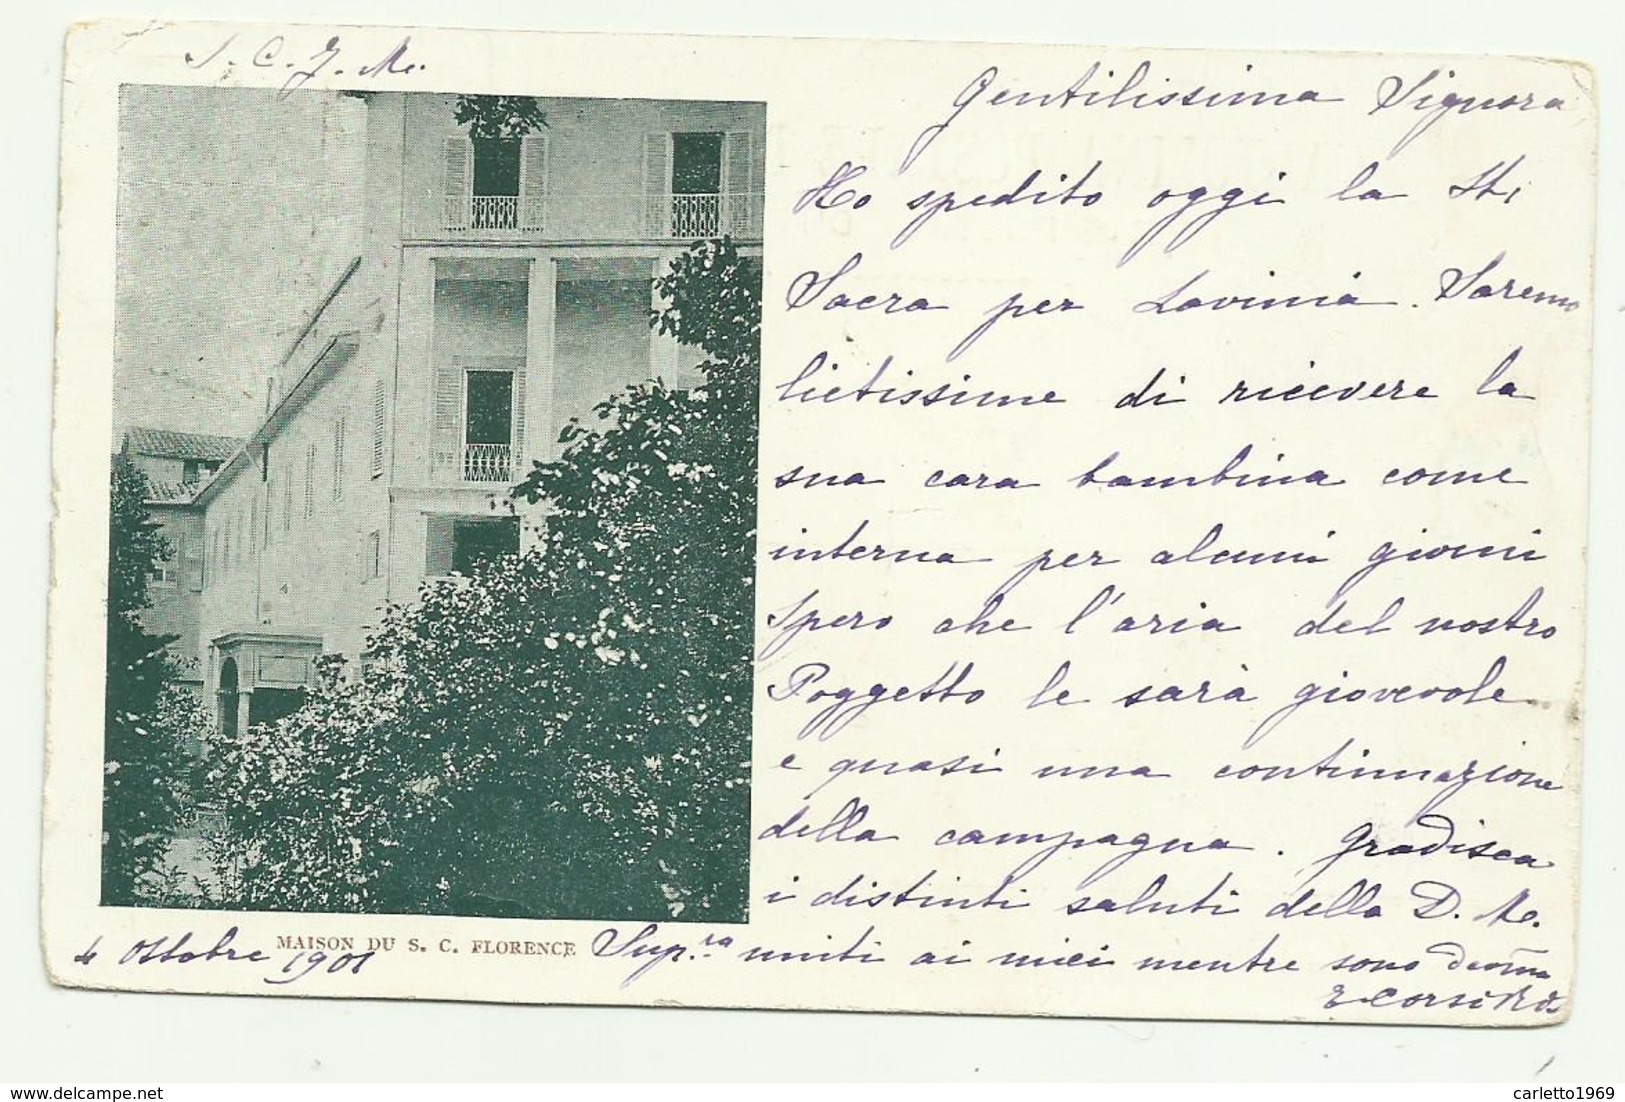 S. C. J. M.
Gentilissima Signora
Ho spedito oggi la St;
Sacra per Lavinia. Saremo
lietissime di ricevere la
sua cara bambina come
interna per alcuni giorni
spero che l'aria del nostro
Poggetto le sarà giovevole
e quasi una continuazione
della campagna. Gradisca
i distinti saluti della D. Me.
Sup.ra uniti ai miei mentre sono devōma
E Corsi
MAISON DU S. C. FLORENCE
4 Ottobre 1901
carletto1969